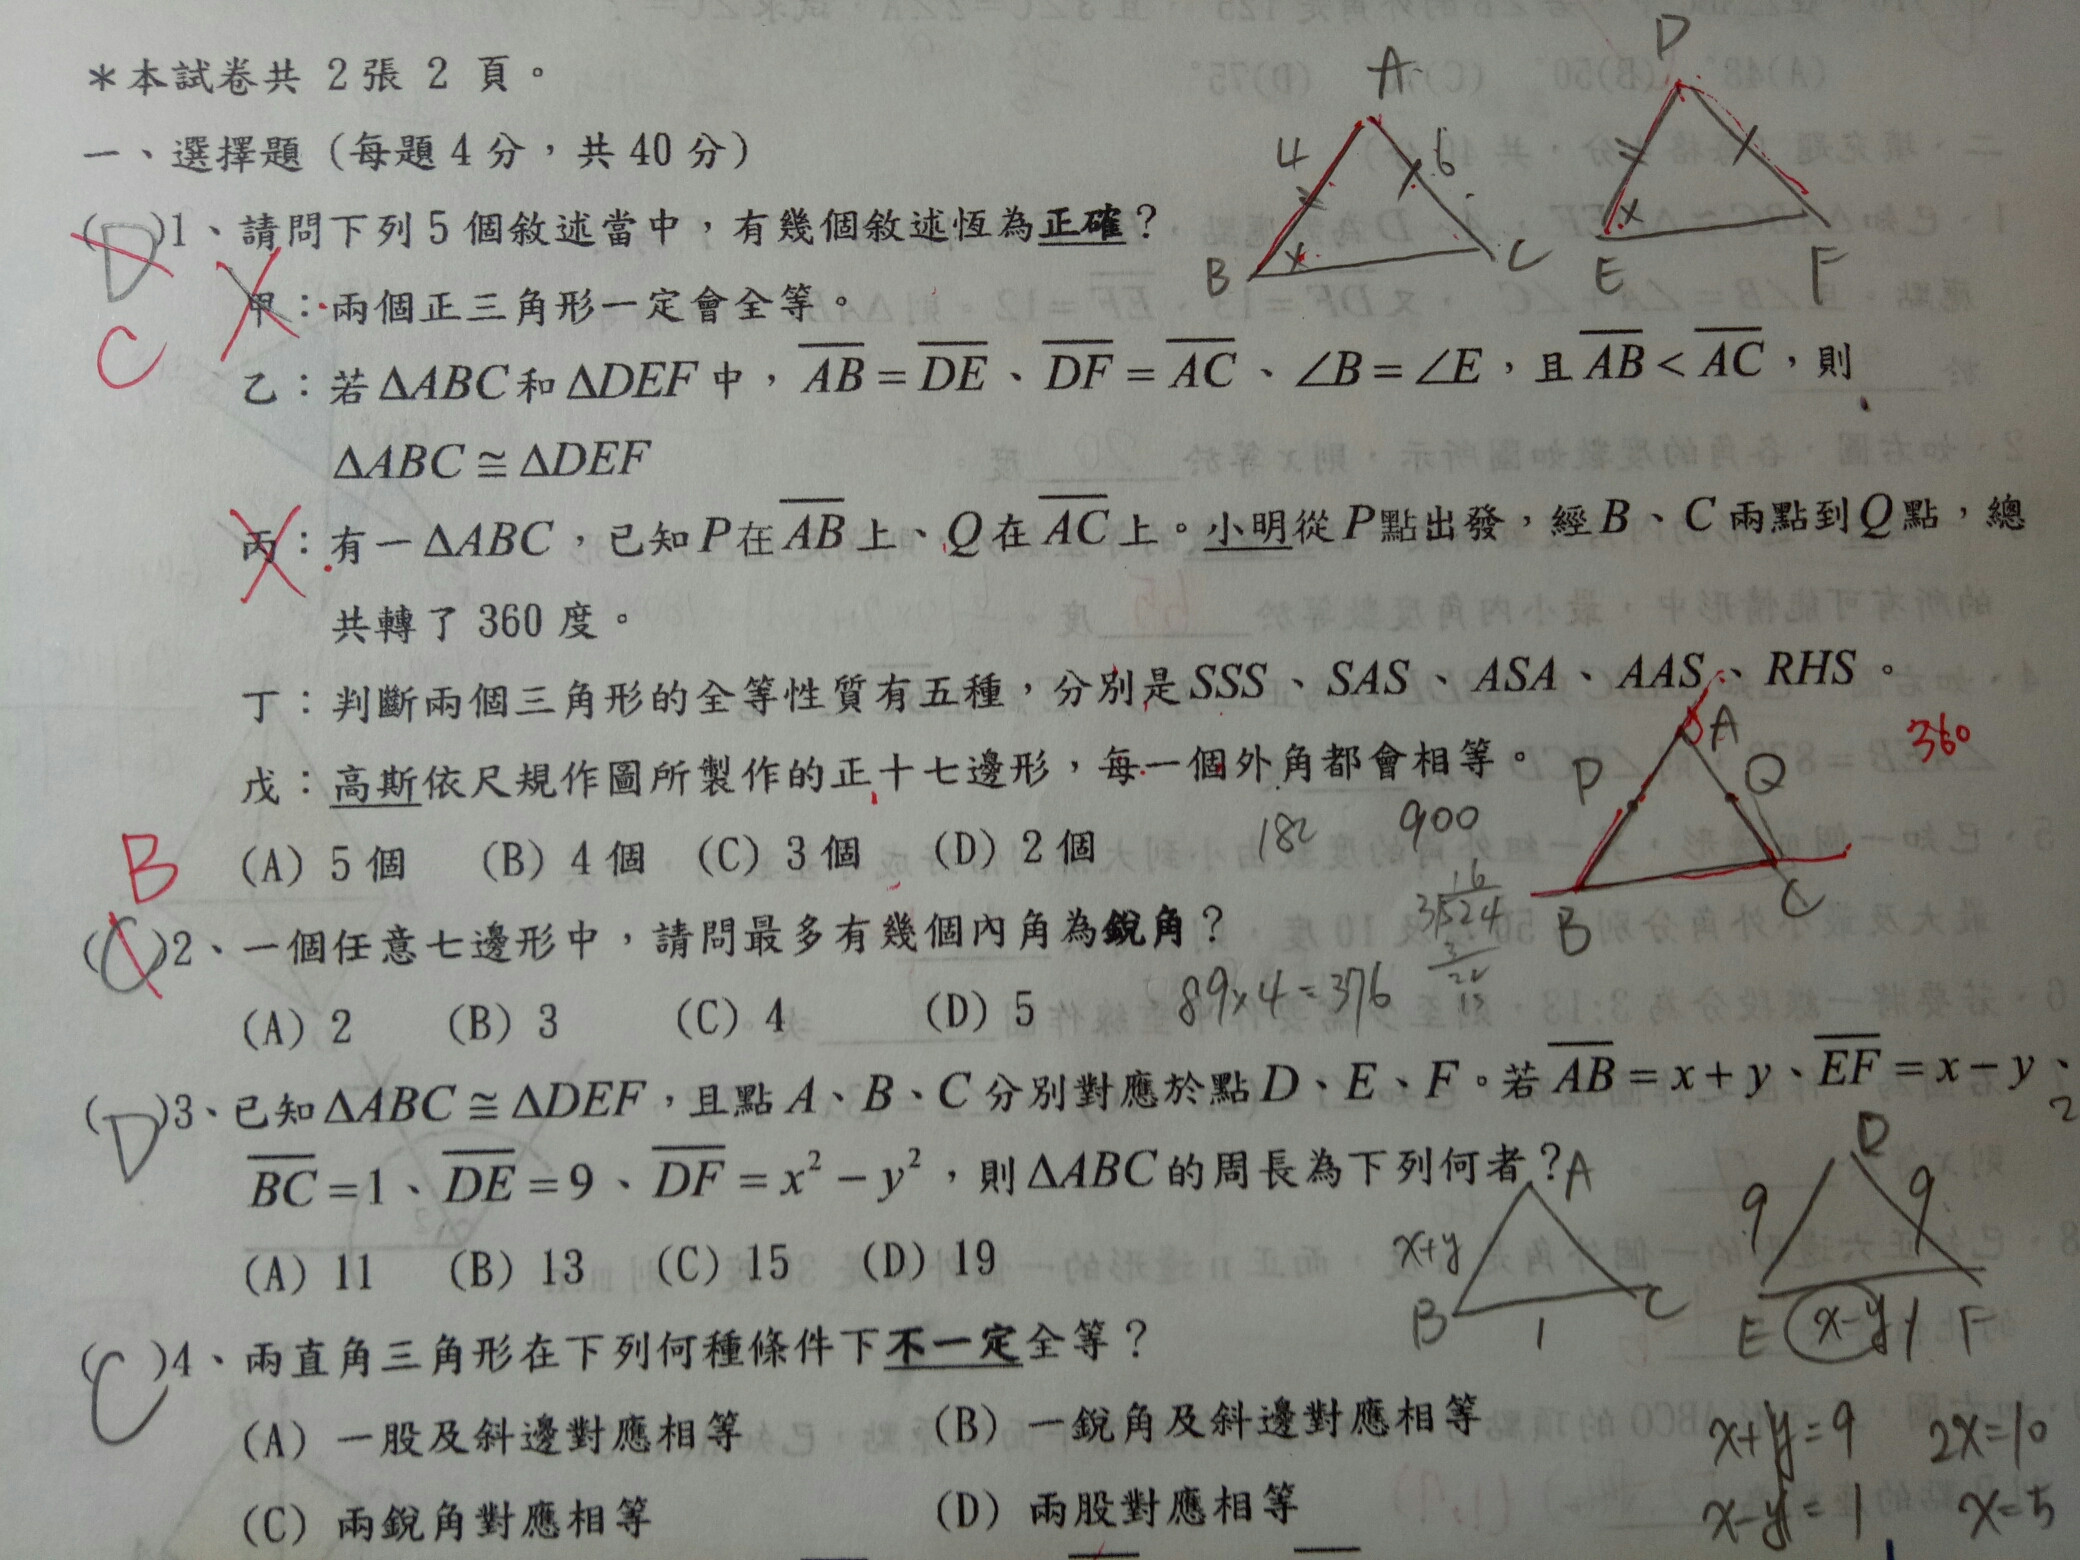 ＊本試卷共 2張 2 頁。
一、選擇題（每題4分，共40分）
(D)1、請問下列5個敘述當中，有幾個敘述恆為正確？
C
甲：兩個正三角形一定會全等。
乙：若ΔABC和ΔDEF中，AB=DE、DF=AC、∠B=∠E，且AB<AC，則
ΔABC≅ΔDEF
丙：有一ΔABC，已知P在AB上、Q在AC上。小明從P點出發，經B、C兩點到Q點，總
共轉了360度。
丁：判斷兩個三角形的全等性質有五種，分別是SSS、SAS、ASA、AAS、RHS。
戊：高斯依尺規作圖所製作的正十七邊形，每一個外角都會相等。
(A) 5個 (B) 4個 (C) 3個 (D) 2個
B
(C)2、一個任意七邊形中，請問最多有幾個內角為銳角？
(A) 2 (B) 3 (C) 4 (D) 5
(D)3、已知ΔABC≅ΔDEF，且點A、B、C分別對應於點D、E、F。若AB=x+y、EF=x−y、
BC=1、DE=9、DF=x²−y²，則ΔABC的周長為下列何者？
(A) 11 (B) 13 (C) 15 (D) 19
(C)4、兩直角三角形在下列何種條件下不一定全等？
(A) 一股及斜邊對應相等 (B) 一銳角及斜邊對應相等
(C) 兩銳角對應相等 (D) 兩股對應相等
A
4 6
B C
D
E F
A 360
P Q
B C
900
89×4=376
A
x+y
B 1 C
D
9 9
E x-y 1 F
x+y=9 2x=10
x-y=1 x=5